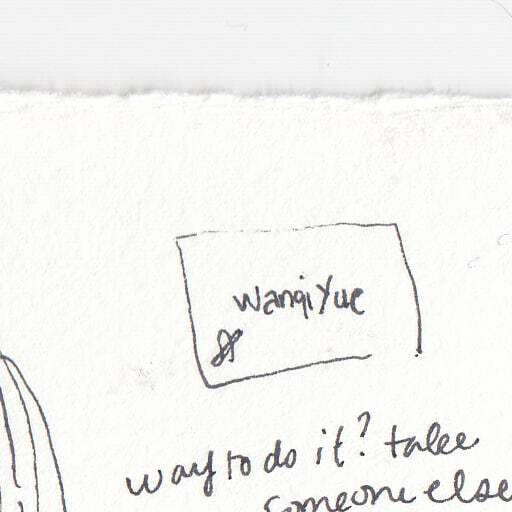 WanqiYue
way to do it? take
someone else